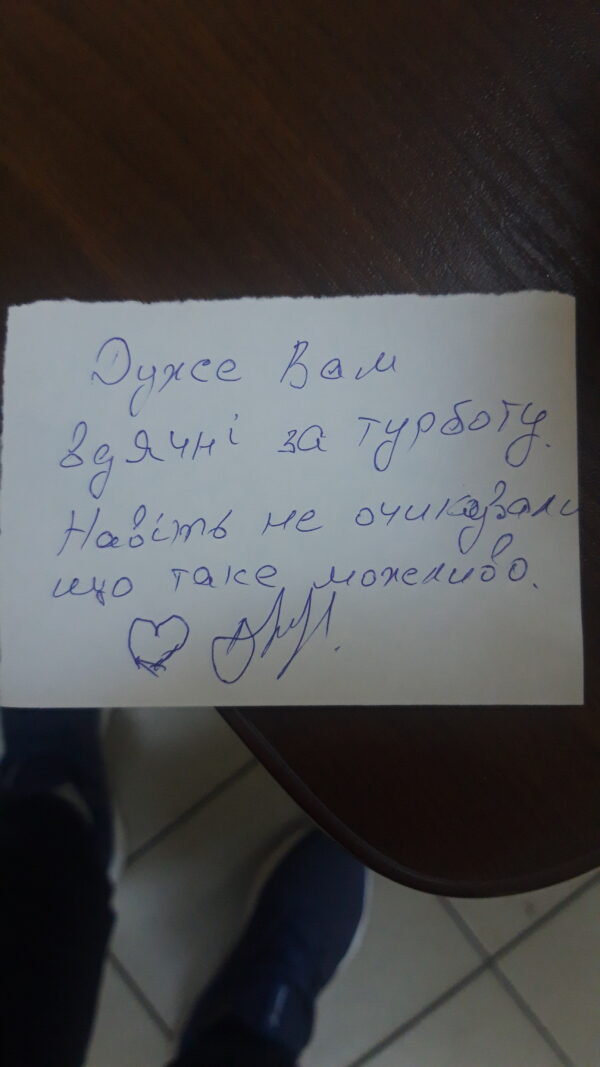 Дуже Вам
вдячні за турботу.
Навіть не очикували
що таке можливо.